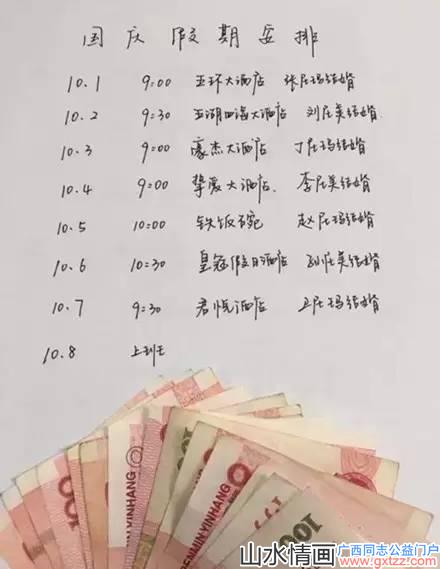 国庆假期安排
10.1 9:00 五环大酒店 张屁玛结婚
10.2 9:30 五湖四海大酒店 刘屁美结婚
10.3 9:00 豪杰大酒店 丁屁玛结婚
10.4 9:00 挚爱大酒店 李屁美结婚
10.5 10:00 铁饭碗 赵屁玛结婚
10.6 10:30 皇冠假日酒店 孙屁美结婚
10.7 9:30 君悦酒店 卫屁玛结婚
10.8 上班
RENMIN YINHANG
100
100
RENMIN YINHANG
山水情画
广西同志公益门户
www.gxtzz.com